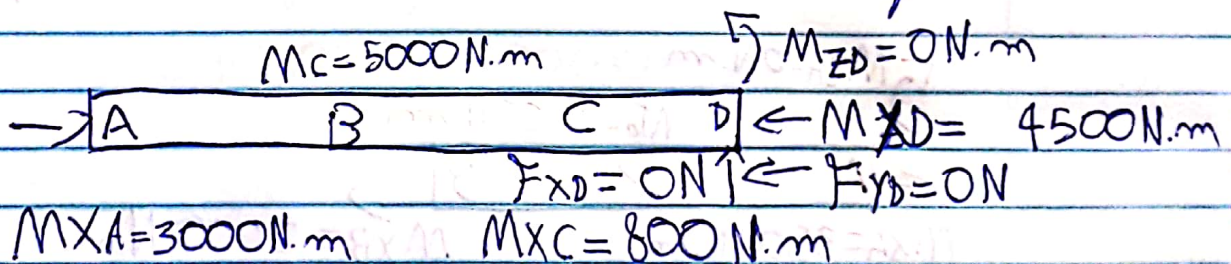 Mc=5000N.m MZD=0N.m
A B C D ← MXD= 4500N.m
FXD=0N ← FYD=0N
MXA=3000N.m MXC=800N.m